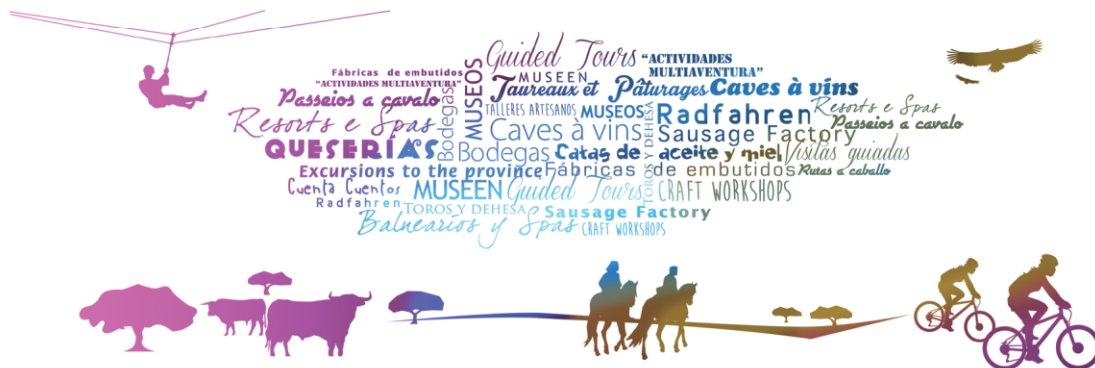 Guided Tours
"ACTIVIDADES
MULTIAVENTURA"
Fábricas de embutidos
"ACTIVIDADES MULTIAVENTURA"
MUSEOS
MUSEEN
Taureaux et Pâturages
Caves à vins
Passeios a cavalo
Bodegas
TALLERES ARTESANOS
MUSEOS
TOROS Y DEHESA
Radfahren
Resorts e Spas
Passeios a cavalo
Resorts e Spas
Caves à vins
Sausage Factory
QUESERÍAS
Bodegas
Catas de aceite y miel
Visitas guiadas
Excursions to the province
Fábricas de embutidos
Rutas a caballo
Cuenta Cuentos
MUSEEN
Guided Tours
CRAFT WORKSHOPS
Radfahren
TOROS Y DEHESA
Sausage Factory
Balnearios y Spas
CRAFT WORKSHOPS